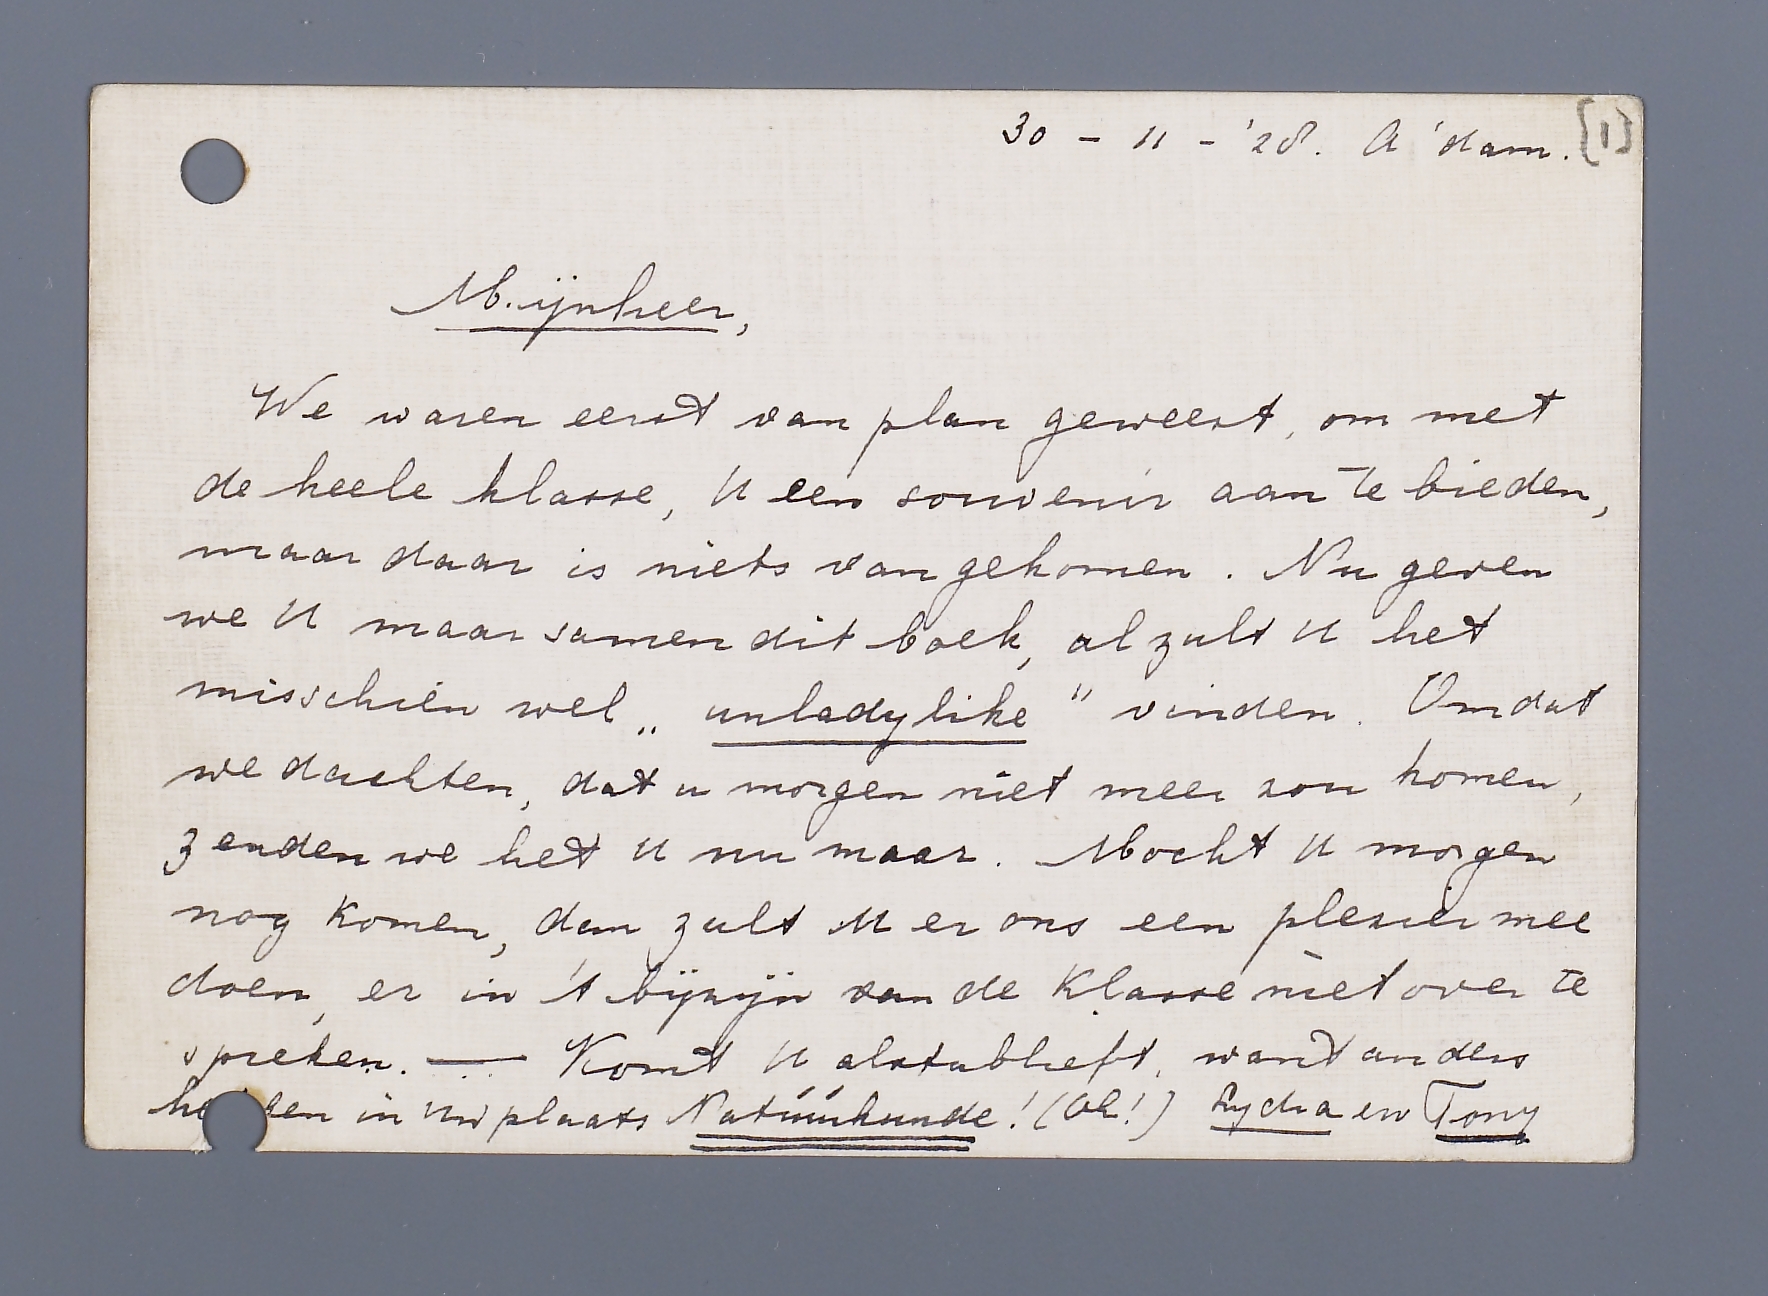 30 - 11 - '28. A'dam. [1]
Mijnheer,
We waren eerst van plan geweest, om met
de heele klasse, U een souvenir aan te bieden,
maar daar is niets van gekomen. Nu geven
we U maar samen dit boek, al zult U het
misschien wel „unladylike" vinden. Omdat
we dachten, dat u morgen niet meer zou komen,
zenden we het U nu maar. Mocht U morgen
nog komen, dan zult U er ons een plezier mee
doen, er in 't bijzijn van de Klasse niet over te
spreken. — Komt U alstublieft, want anders
in Uw plaats Natuurkunde! (Oh!) Lydia en Tony